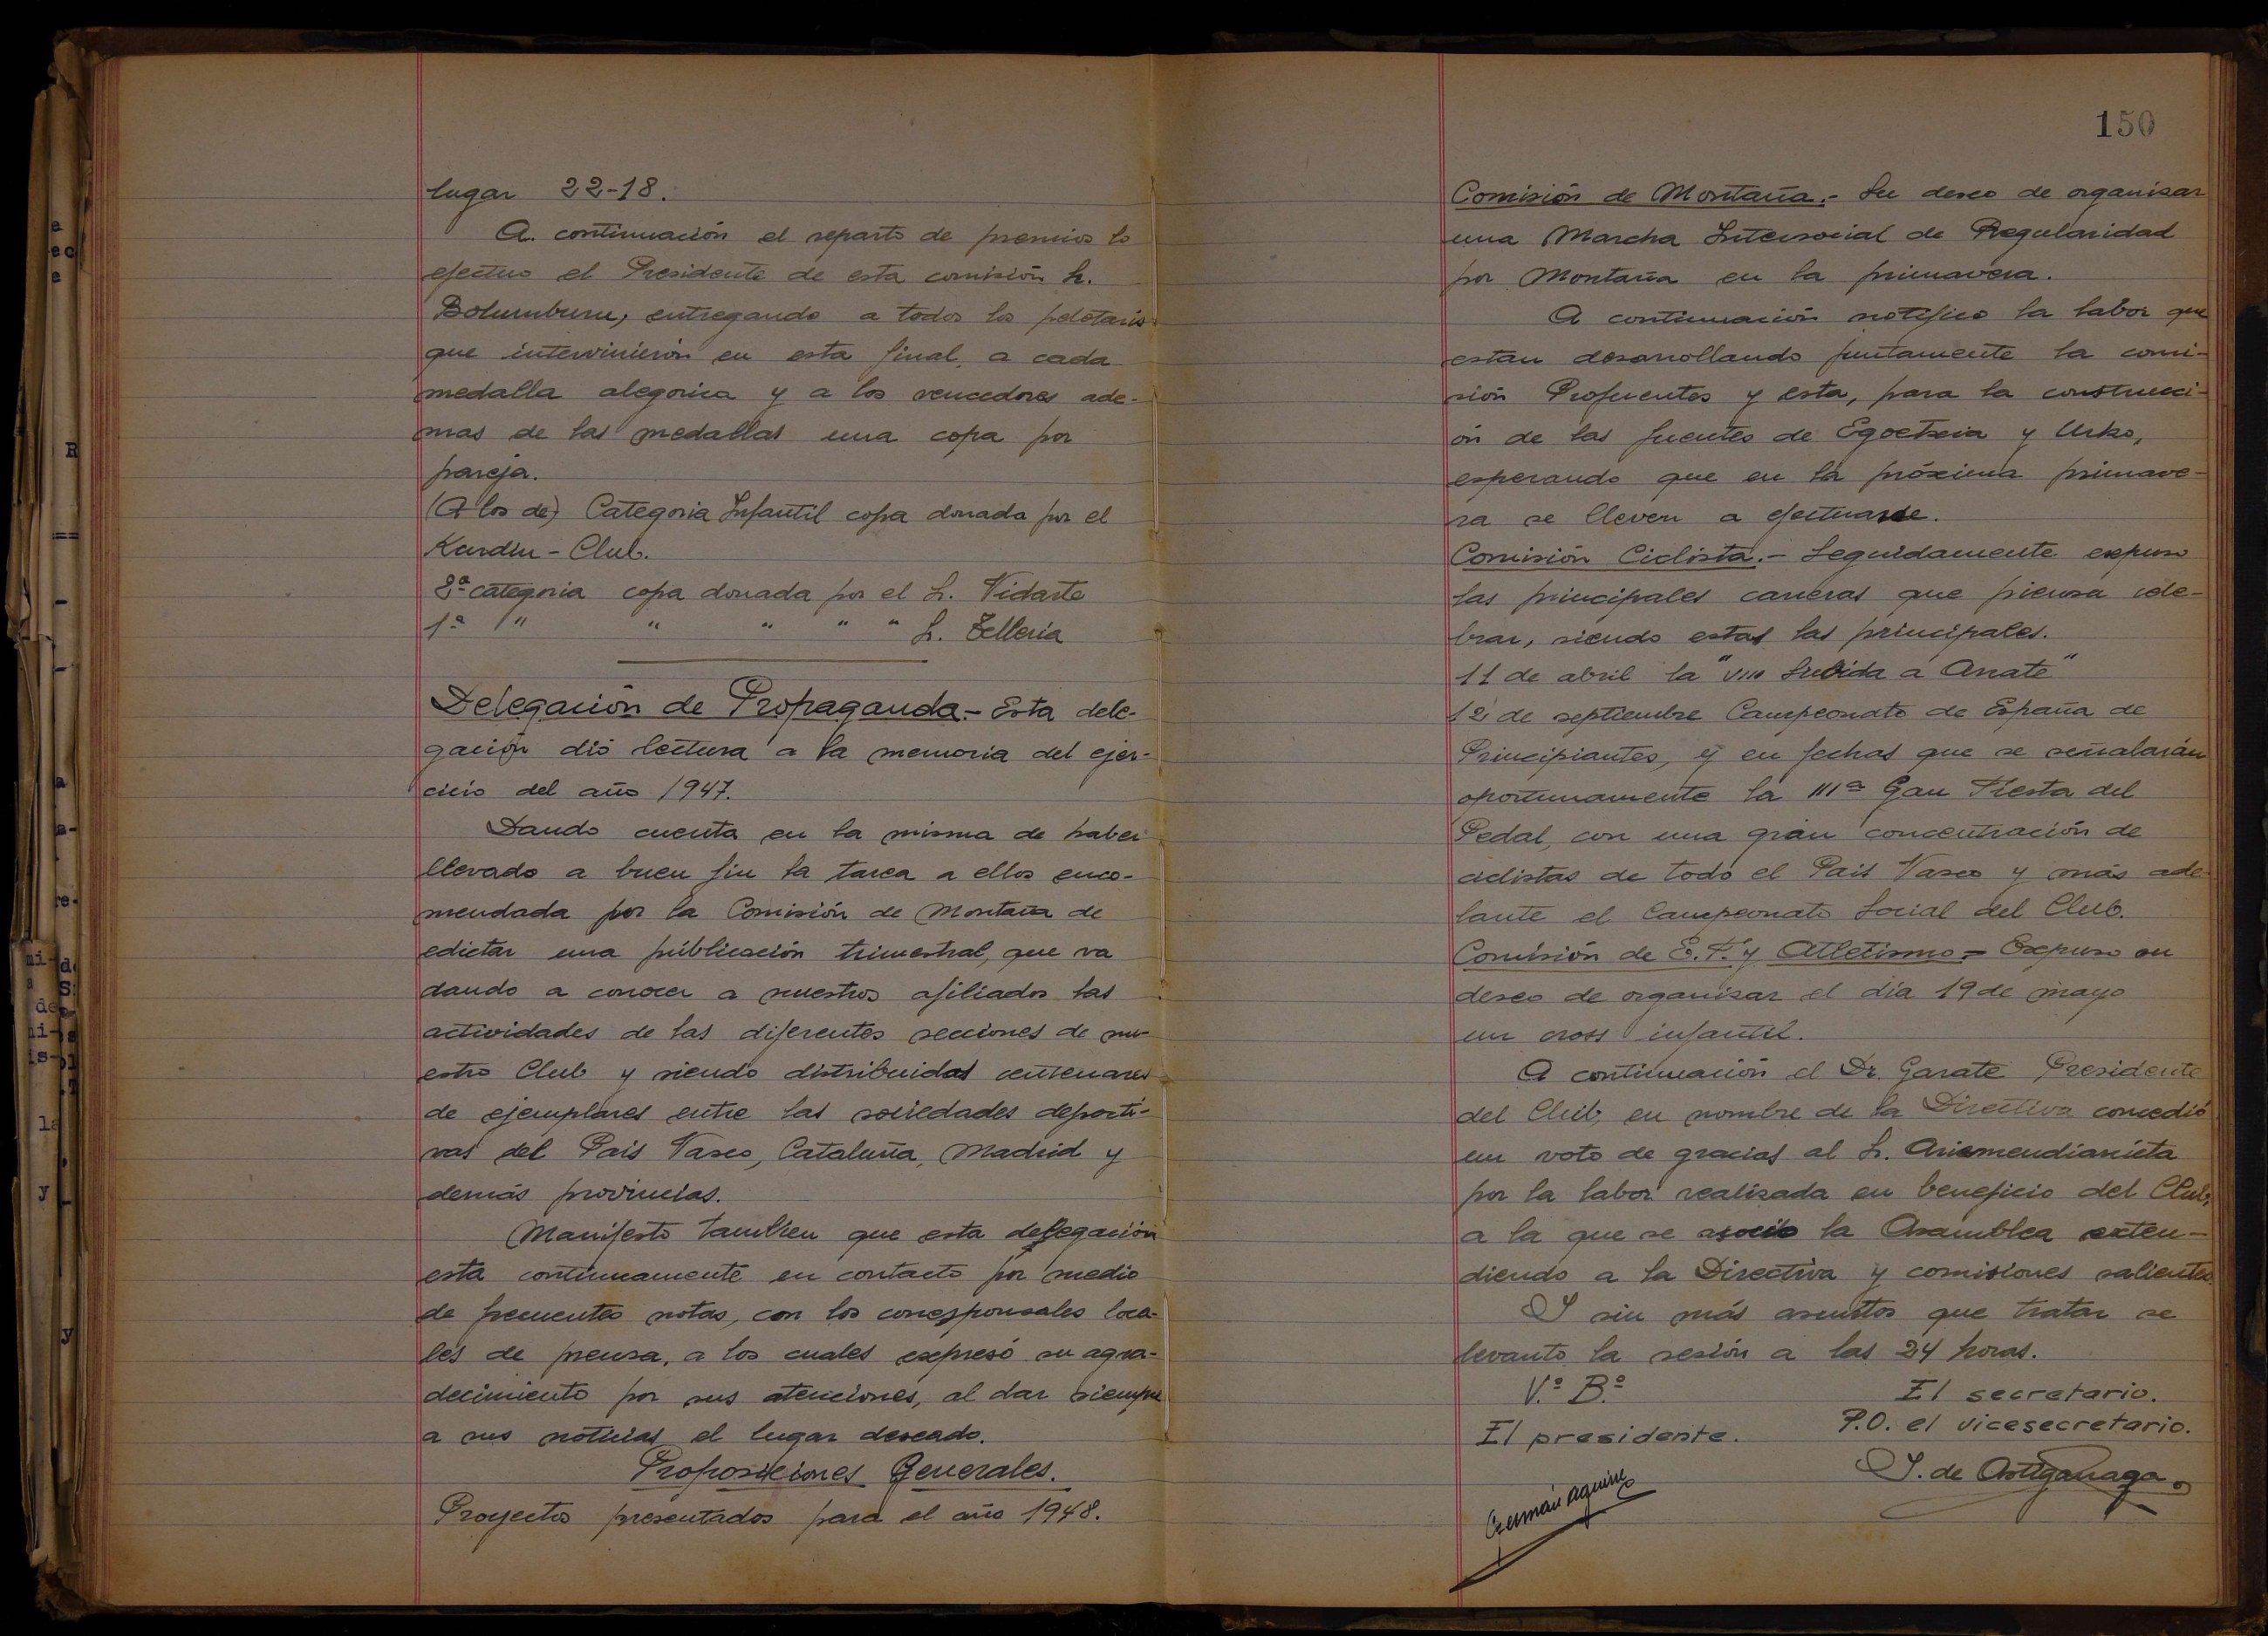 lugar 22-18.
A. continuación el reparto de premios lo
efectuo el Presidente de esta comisión Sr.
Bolumburu, entregando a todos los pelotaris
que intervinierón en esta final, a cada
medalla alegorica y a los vencedores ade-
mas de las medallas una copa por
pareja.
(A los de) Categoria Infantil copa donada por el
Kurdin-Club.
categoria copa donada por el Sr. Vidarte
1ª " " " " " Sr. Telleria
Delegación de Propaganda.- Esta dele-
gación dió lectura a la memoria del ejer-
cicio del año 1947.
Dando cuenta en la misma de haber
llevado a buen fin la tarea a ellos enco-
mendada por la Comisión de Montaña de
edictar una publicación trimestral, que va
dando a conocer a nuestros afiliados las
actividades de las diferentes secciones de nu-
estro Club y siendo distribuidas centenares
de ejemplares entre las sociedades deporti-
vas del Pais Vasco, Cataluña, Madrid y
demás provincias.
Manifesto tambien que esta delegación
esta continuamente en contacto por medio
de frecuentes notas, con los corresponsales loca-
les de prensa, a los cuales expresó su agra-
decimiento por sus atenciones, al dar siempre
a sus noticias el lugar deseado.
Proposiciones Generales.
Proyectos presentados para el año 1948.
150
Comisión de Montaña.- Su deseo de organizar
una Marcha Intersocial de Regularidad
por Montaña en la primavera.
A continuación notifico la labor que
estan desarrollando juntamente la comi-
sión Profuentes y esta, para la construcci-
ón de las fuentes de Egoetxeia y Urko,
esperando que en la próxima primave-
ra se lleven a efectuarse.
Comisión Ciclista.- Seguidamente expuso
las principales carreras que piensa cele-
brar, siendo estas las principales.
11 de abril la "VIII Subida a Arrate"
12 de septiembre Campeonato de España de
Principiantes, y en fechas que se señalarán
oportunamente la IIIª Gran Fiesta del
Pedal, con una gran concentración de
ciclistas de todo el Pais Vasco y más ade-
lante el Campeonato Social del Club.
Comisión de E.F. y Atletismo.= Expuso su
deseo de organizar el dia 19 de mayo
un cross infantil.
A continuación el Dr. Garate Presidente
del Club, en nombre de la Directiva concedió
un voto de gracias al Sr. Arismendiarrieta
por la labor realizada en beneficio del Club,
a la que se asocio la Asamblea exten-
diendo a la Directiva y comisiones salientes.
Y sin más asuntos que tratar se
levanto la sesión a las 24 horas.
V.º B.º
El secretario.
El presidente.
P.O. el vicesecretario.
German Aguirre
J. de Astigarraga